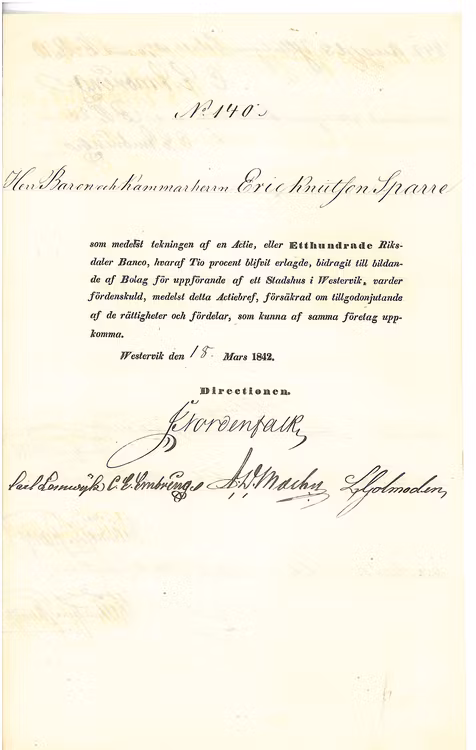 No 140.
Herr Baron och Kammarherrn Eric Knutson Sparre
som medelst tekningen af en Actie, eller Etthundrade Riks-
daler Banco, hvaraf Tio procent blifvit erlagde, bidragit till bildan-
de af Bolag för uppförande af ett Stadshus i Westervik, varder
fördenskuld, medelst detta Actiebref, försäkrad om tillgodonjutande
af de rättigheter och fördelar, som kunna af samma företag upp-
komma.
Westervik den 18. Mars 1842.
Directionen.
Nordenfalk
Carl C. E. A. D. Maehn